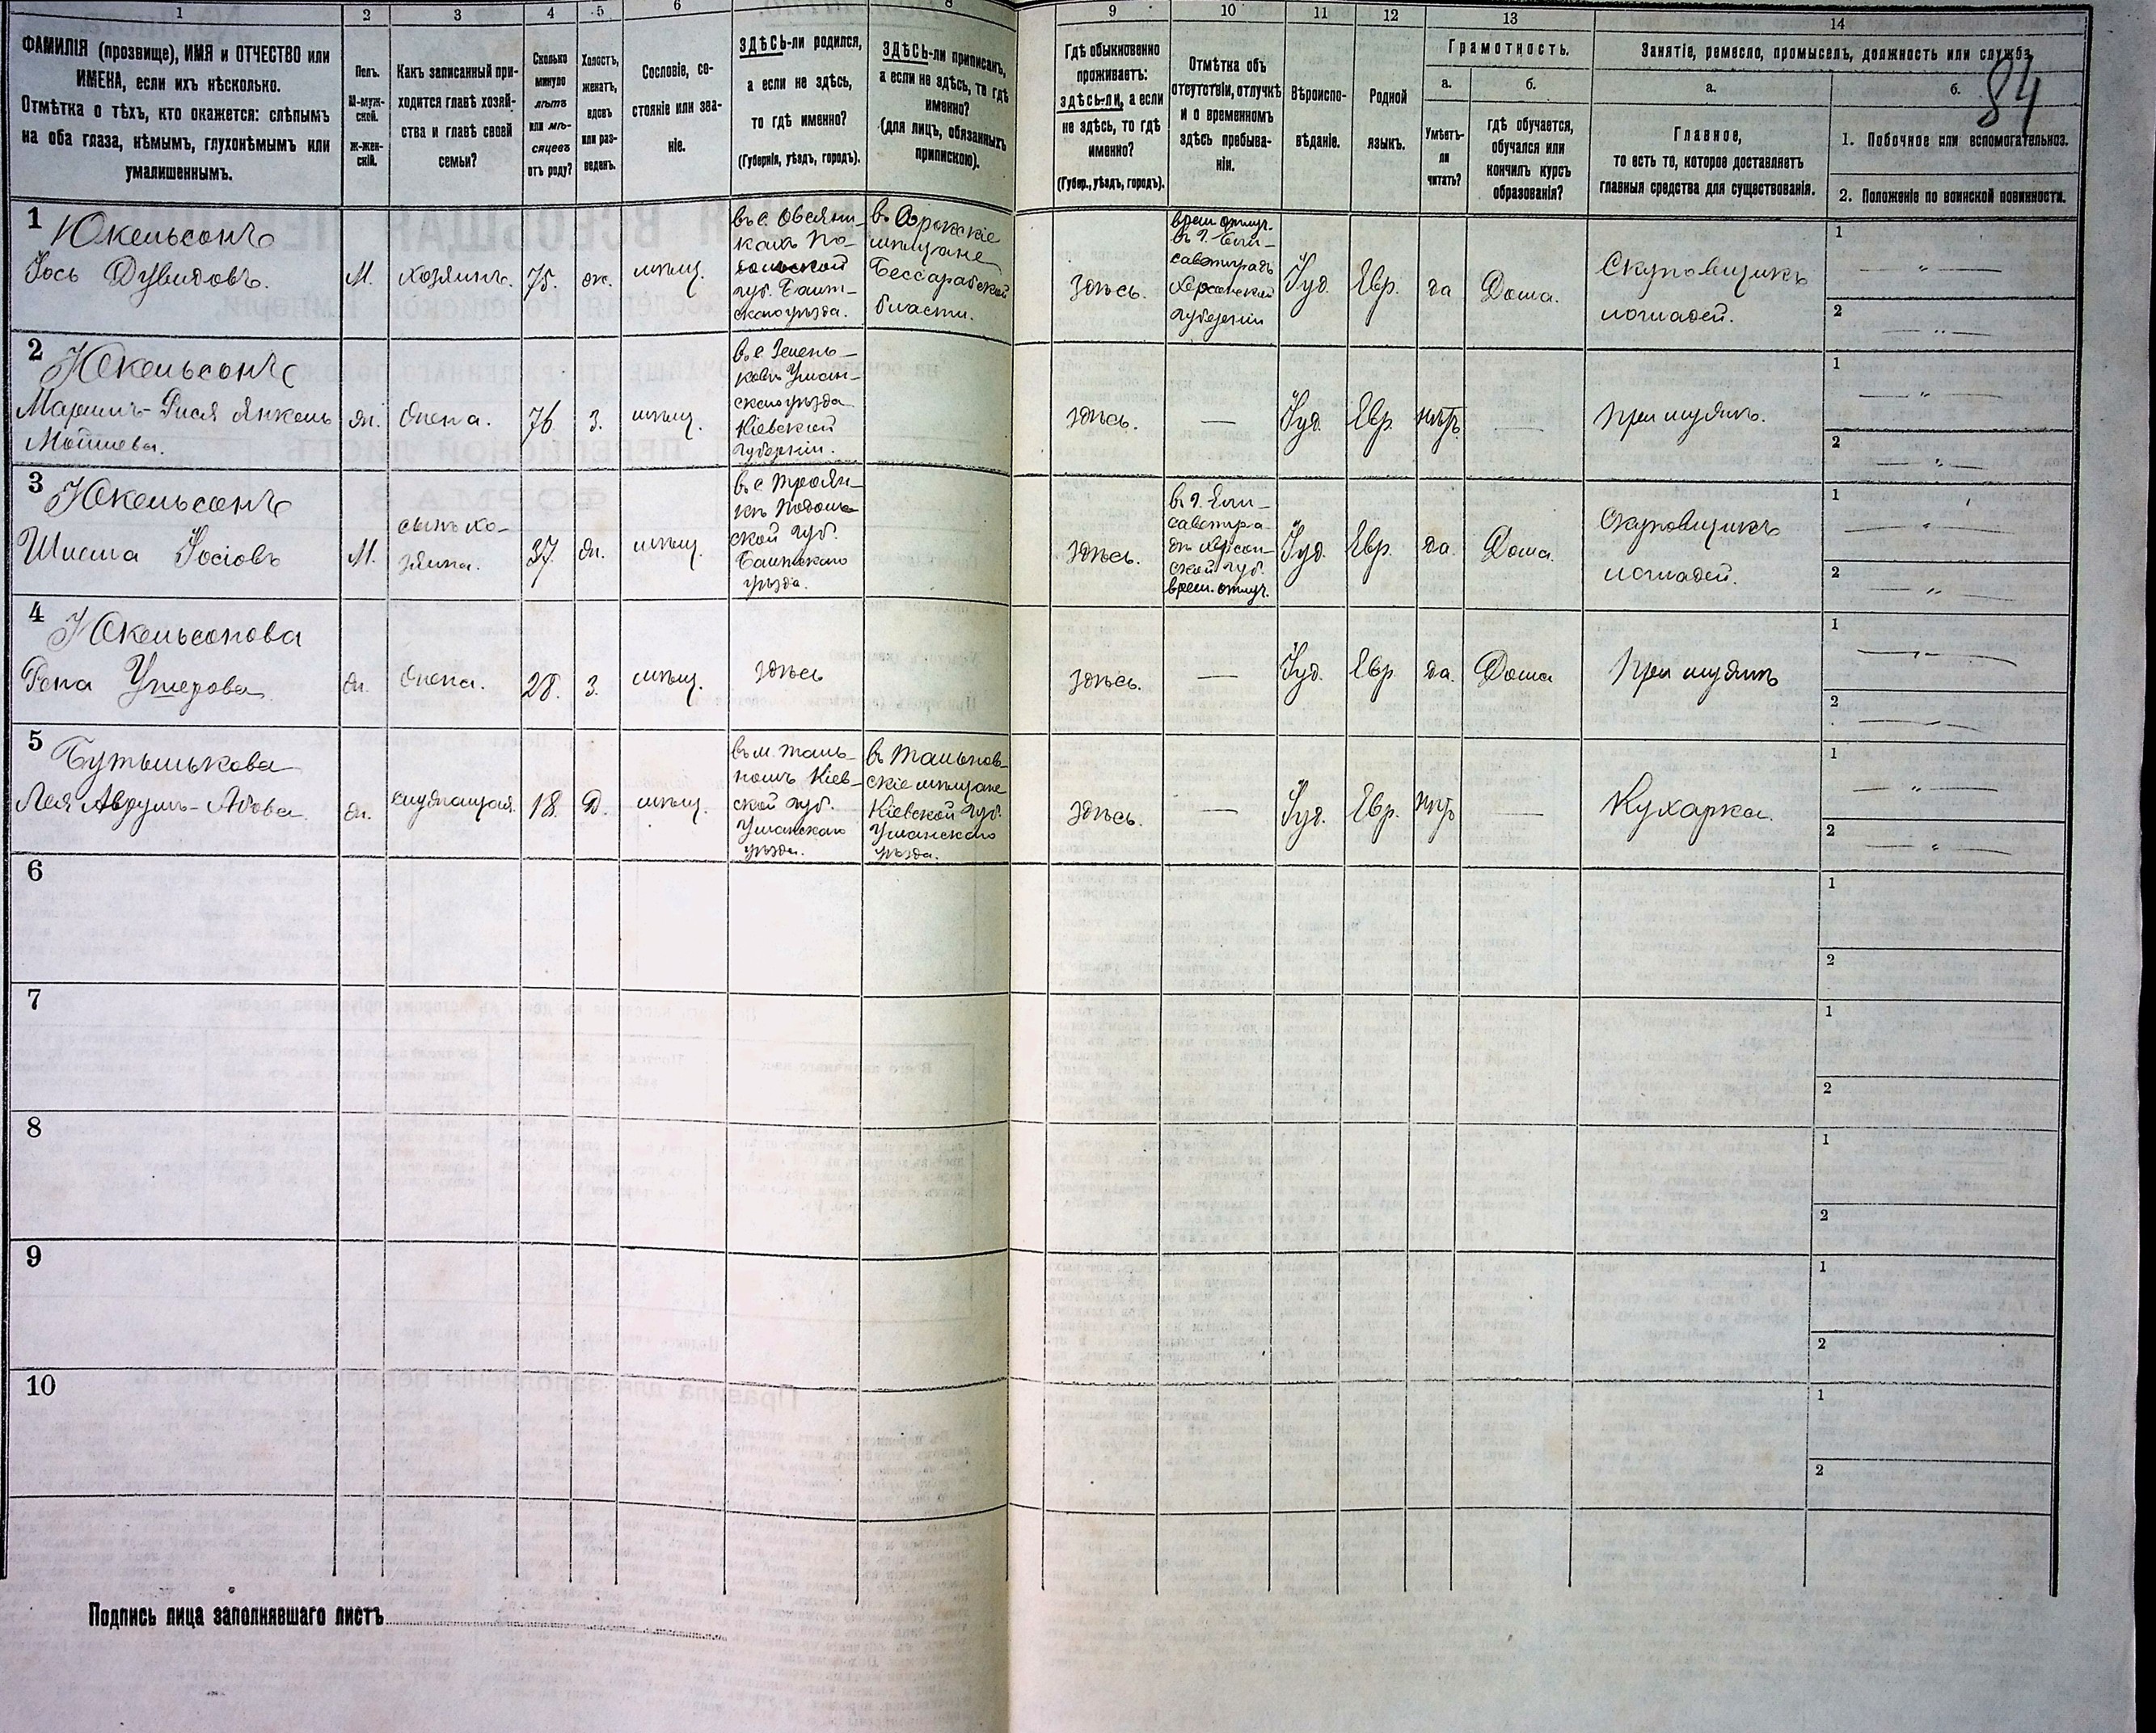 1 2 3 4 5 6 7 8 9 10 11 12 13 14
84
ФАМИЛІЯ (прозвище), ИМЯ и ОТЧЕСТВО или
ИМЕНА, если ихъ нѣсколько.
Отмѣтка о тѣхъ, кто окажется: слѣпымъ
на оба глаза, нѣмымъ, глухонѣмымъ или
умалишеннымъ.
Полъ.
М-муж-
ской.
Ж-жен-
скій.
Какъ записанный при-
ходится главѣ хозяй-
ства и главѣ своей
семьи?
Сколько
минуло
лѣтъ
или мѣ-
сяцевъ
отъ роду?
Холостъ,
женатъ,
вдовъ
или раз-
веденъ.
Сословіе, со-
стояніе или зва-
ніе.
ЗДѢСЬ-ли родился,
а если не здѣсь,
то гдѣ именно?
(Губернія, уѣздъ, городъ).
ЗДѢСЬ-ли приписанъ,
а если не здѣсь, то гдѣ
именно?
(для лицъ, обязанныхъ
припискою).
Гдѣ обыкновенно
проживаетъ:
здѣсь-ли, а если
не здѣсь, то гдѣ
именно?
(Губер., уѣздъ, городъ).
Отмѣтка объ
отсутствіи, отлучкѣ
и о временномъ
здѣсь пребыва-
ніи.
Вѣроиспо-
вѣданіе.
Родной
языкъ.
Грамотность.
а.
Умѣетъ-
ли
читать?
б.
гдѣ обучается,
обучался или
кончилъ курсъ
образованія?
Занятіе, ремесло, промыселъ, должность или служба.
а.
Главное,
то есть то, которое доставляетъ
главныя средства для существованія.
б.
1. Побочное или вспомогательное.
2. Положеніе по воинской повинности.
1
Юкельсонъ
Іось Дувидовъ.
М.
хозяинъ.
75.
ж.
мѣщ.
въ с. Овсяни-
кахъ По-
дольской
губ. Балт-
скаго уѣзда.
въ Сорокскіе
мѣщане
Бессарабской
области.
Здѣсь.
врем. отлуч.
въ г. Ели-
саветградъ
Херсонской
губерніи
Іуд.
Евр.
да
Дома.
Скуповщикъ
лошадей.
1
2
2
Юкельсонъ
Янкель
Мошкева.
ж.
жена.
76
З.
мѣщ.
въ с. Зелень-
ковъ Уман-
скаго уѣзда
Кіевской
губерніи.
здѣсь.
—
Іуд.
Евр.
нѣтъ
—
при мужѣ.
1
2
3
Юкельсонъ
Шлема Іосіовъ
М.
сынъ хо-
зяина.
37.
ж.
мѣщ.
въ с. Троян-
кѣ Подоль-
ской губ.
Балтскаго
уѣзда.
здѣсь.
въ г. Ели-
саветгра-
дѣ Херсон-
ской губ.
врем. отлуч.
Іуд.
Евр.
да.
Дома.
Скуповщикъ
лошадей.
1
2
4
Юкельсонова
Ушерова
ж.
жена.
28.
З.
мѣщ.
здѣсь
здѣсь.
—
Іуд.
Евр.
да.
Дома
При мужѣ
1
2
5
Бутылькова
Лея Аврумъ-Абова.
ж.
служащая.
18.
Д.
мѣщ.
въ м. Таль-
номъ Кіев-
ской губ.
Уманскаго
уѣзда.
въ Тальнов-
скіе мѣщане
Кіевской губ.
Уманскаго
уѣзда.
здѣсь.
—
Іуд.
Евр.
нѣтъ
—
Кухарка.
1
2
6
1
2
7
1
2
8
1
2
9
1
2
10
1
2
Подпись лица заполнявшаго листъ